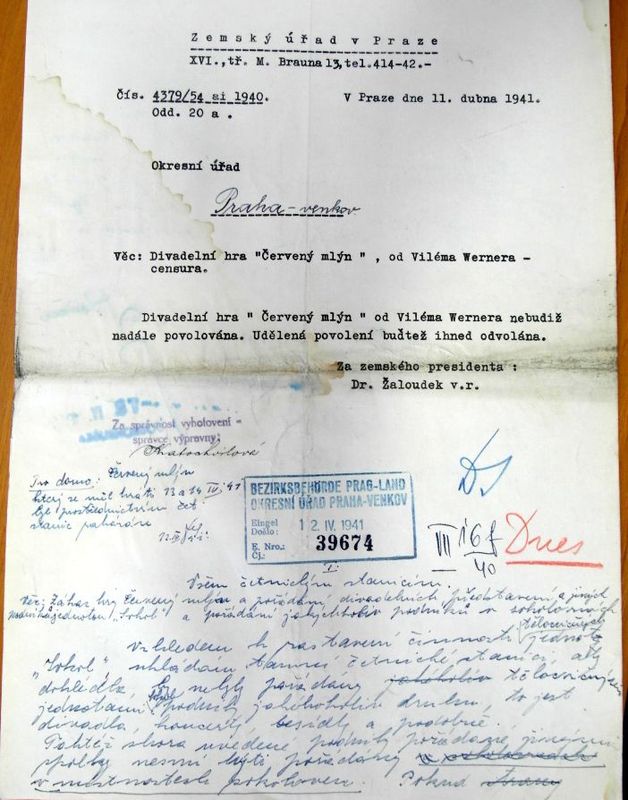 Zemský úřad v Praze
XVI.,tř. M. Brauna 13,tel.414-42.-
Čís. 4379/54 ai 1940.
V Praze dne 11. dubna 1941.
Odd. 20 a .
Okresní úřad
Praha-venkov
Věc: Divadelní hra "Červený mlýn " , od Viléma Wernera -
censura.
Divadelní hra " Červený mlýn " od Viléma Wernera nebudiž
nadále povolována. Udělená povolení buďtež ihned odvolána.
Za zemského presidenta :
Dr. Žaloudek v.r.
Za správnost vyhotovení -
správce výpravny:
Pro domo: Červený mlýn
který se měl hráti 13 a 14 IV 41
byl prostřednictvím čet.
stanic
BEZIRKSBEHÖRDE PRAG-LAND
OKRESNÍ ÚŘAD PRAHA-VENKOV
Eingel
Došlo: 12. IV. 1941
E. Nro.:
Čj.: 39674
III 16
40
Dnes
I.
Všem četnickým stanicím.
Věc: Zákaz hry Červený mlýn a pořádání divadelních představení a jiných
podniků jednotou "Sokol" a pořádání jakýchkoliv podniků v sokolovnách
Vzhledem k zastavení činnosti tělocvičných jednot
"Sokol" ukládám tamní četnické stanici, aby
dohlédla, by nebyly pořádány tělocvičnými
jednotami Sokol podniky jakéhokoliv druhu, to jest
divadla, koncerty, besídky a podobně.
Taktéž shora uvedené podniky pořádané jinými
spolky nesmí býti pořádány
v místnostech sokoloven. Pokud